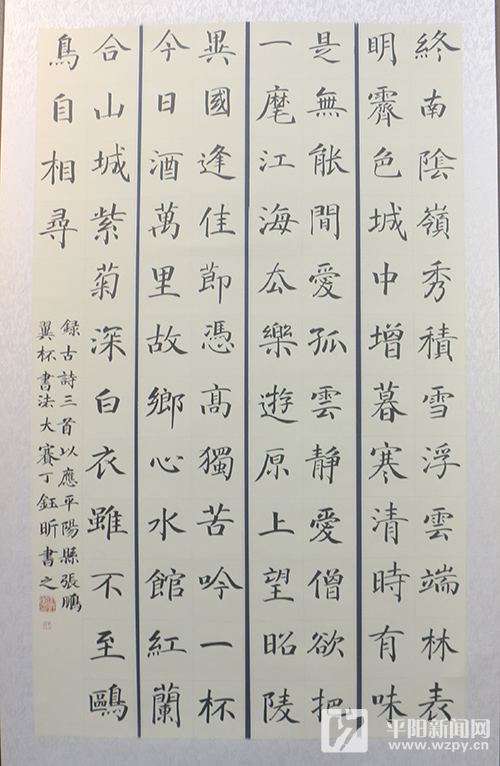 終南陰嶺秀積雪浮雲端林表
明霽色城中增暮寒清時有味
是無能間愛孤雲靜愛僧欲把
一麾江海去樂遊原上望昭陵
異國逢佳節憑高獨苦吟一杯
今日酒萬里故鄉心水館紅蘭
合山城紫菊深白衣雖不至鷗
鳥自相尋
録古詩三首以應平陽縣張鵬
翼杯書法大賽丁鈺昕書之
平阳新闻网
www.wzpy.cn